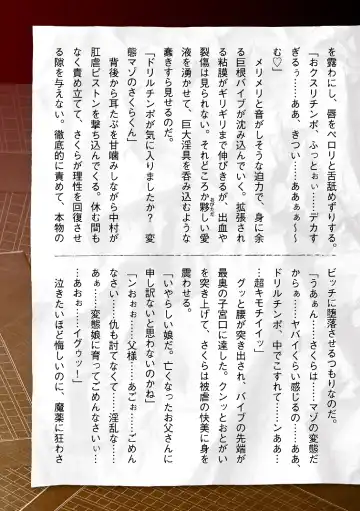 を露わにし、唇をペロリと舌舐めずりする。
「おクスリチンポ、ふっとぉぃ……デカす
ぎるぅ……ああ、きつい……あぁぁぁ～～
む♡」
メリメリと音がしそうな迫力で、身に余
る巨根バイブが沈み込んでいく。拡張され
る粘膜がギリギリまで伸びきるが、出血や
裂傷は見られない。それどころか夥しい愛
液を湧かせて、巨大淫具を呑み込むような
蠢きすら見せるのだ。
「ドリルチンポが気に入りましたか？　変
態マゾのさくらくん」
背後から耳たぶを甘噛みしながら中村が
肛虐ピストンを撃ち込んでくる。休む間も
なく責め立てて、さくらが理性を回復させ
る隙を与えない。徹底的に責めて、本物の
ビッチに堕落させるつもりなのだ。
「うあぁん……さくらは……マゾの変態だ
からぁ……ヤバイくらい感じるの……ああ、
ドリルチンポ、中でこすれて……ンああ…
…超キモチイイッ」
グッと腰が突き出され、バイブの先端が
最奥の子宮口に達した。クンッとおとがい
を突き上げて、さくらは被虐の快美に身を
震わせる。
「いやらしい娘だ。亡くなったお父さんに
申し訳ないと思わないのかね」
「ンおぉぉ……父様……あごぉ……ごめん
なさい……仇も討てなくて……淫乱な……
あぁ……変態娘に育ってごめんなさいぃ…
…あおぉ……イグゥッ！」
泣きたいほど悔しいのに、魔薬に狂わさ